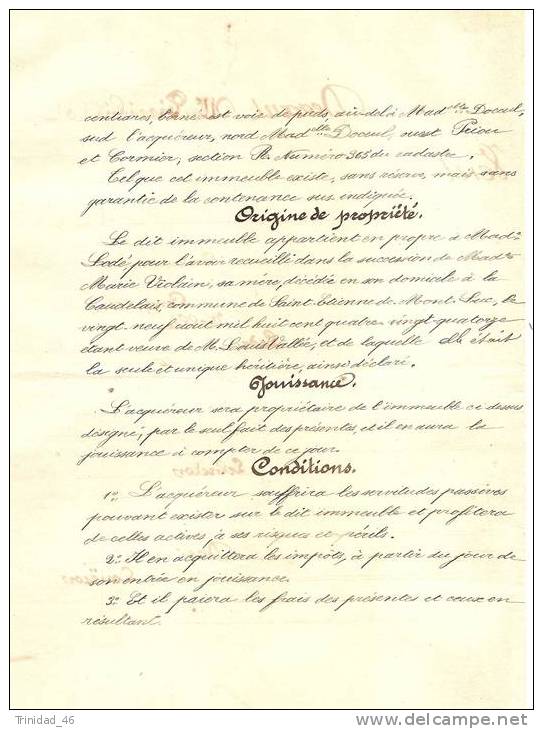 centiares, borné est voie de pieds, au-delà Mad.elle Doceul,
sud l'acquéreur, nord Mad.elle Doceul, ouest Priou
et Cormier, section R. Numéro 365 du cadastre.
Tel que cet immeuble existe, sans réserve, mais sans
garantie de la contenance sus indiquée.
Origine de propriété.
Le dit immeuble appartient en propre à Mad.e
Lodé pour l'avoir recueilli dans la succession de Mad.e
Marie Violain, sa mère, décédée en son domicile à la
Caudelais, commune de Saint Etienne de Mont Luc, le
vingt-neuf août mil huit cent quatre vingt-quatorze
étant veuve de M. Louis Vallée, et de laquelle elle était
la seule et unique héritière, ainsi déclaré.
Jouissance.
L'acquéreur sera propriétaire de l'immeuble ci dessus
désigné, par le seul fait des présentes, et il en aura la
jouissance à compter de ce jour.
Conditions.
1o L'acquéreur souffrira les servitudes passives
pouvant exister sur le dit immeuble et profitera
de celles actives, à ses risques et périls.
2o Il en acquittera les impôts, à partir du jour de
son entrée en jouissance.
3o Et il paiera les frais des présentes et ceux en
résultant.
Trinidad_46
www.delcampe.net